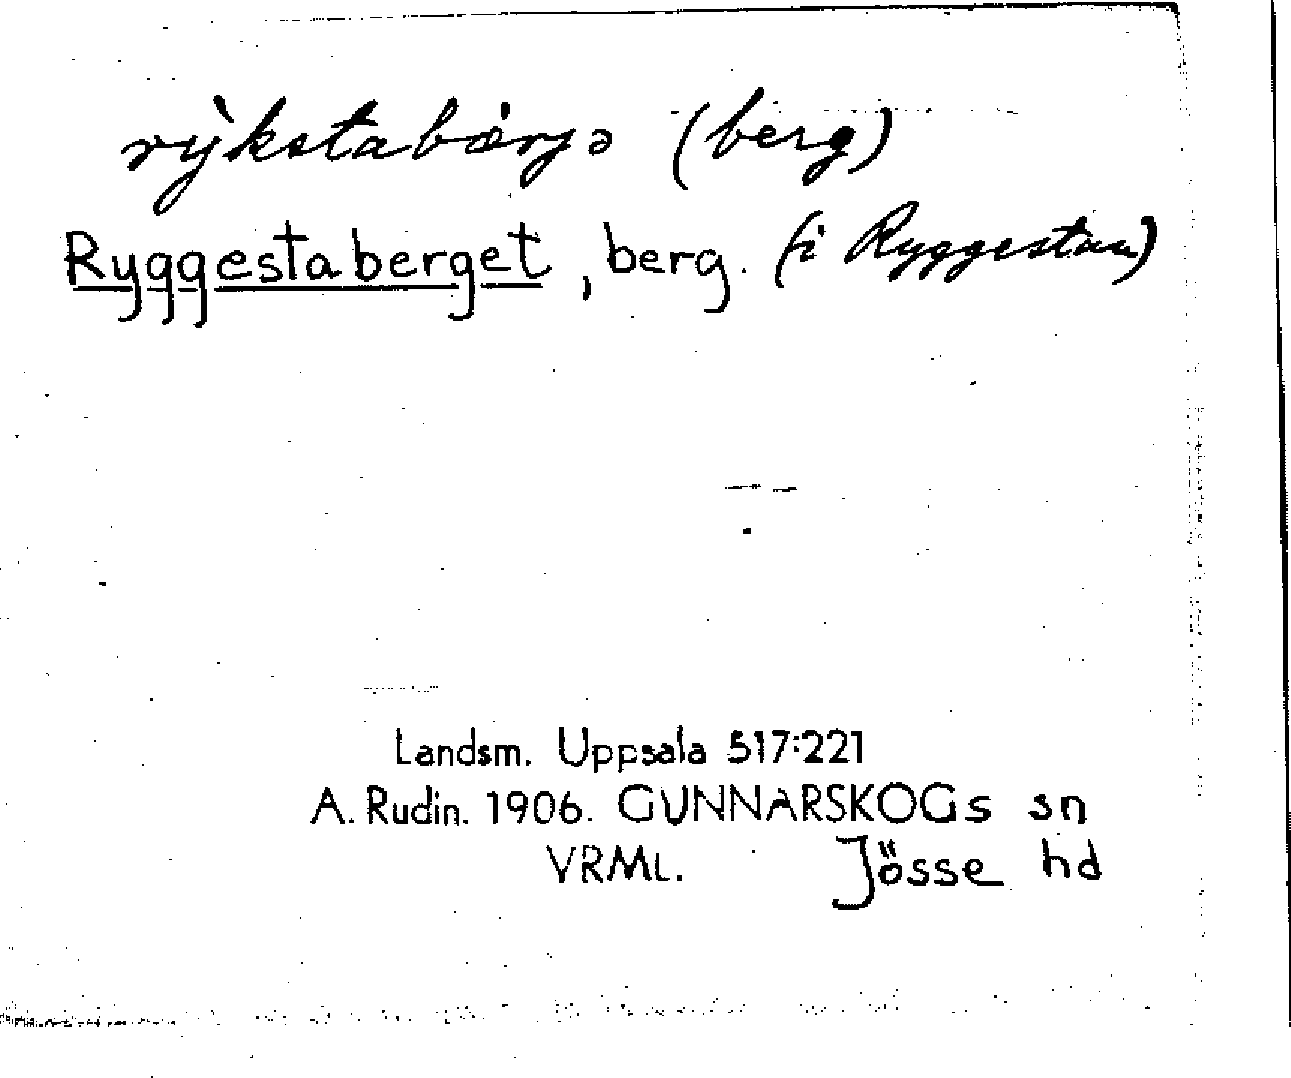 rỳkstabǽrjə (berg)
Ryggestaberget, berg. (i Ryggestan)
Landsm. Uppsala 517:221
A. Rudin. 1906. GUNNARSKOGs sn
VRML. Jösse hd